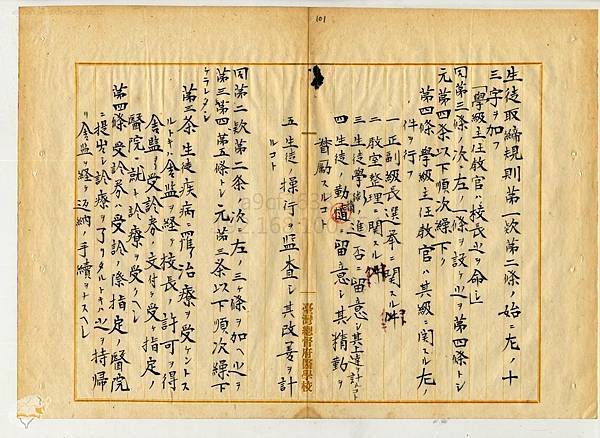 101
生徒取締規則第一次第二條ノ始ニ左ノ十
三字ヲ加フ
「學級主任教官ハ校長之ヲ命シ」
同第三條ノ次ニ左ノ條ヲ設ケ之ヲ第四條トシ
元第四條以下順次繰下ク
第四條 學級主任教官ハ其級ニ関スル左ノ
件ヲ行フ
一 正副級長選挙ニ関スル件
二 教室整理ニ関スル件
三 生徒學術ノ進否ニ留意シ其上達ヲ計ルコト
四 生徒ノ勤惰ニ留意シ其精勤ヲ
奬勵スルコト
臺灣總督府醫學校
五 生徒ノ操行ヲ監査シ其改善ヲ計
ルコト
同第二次第二条ノ次ニ左ノ三ケ條ヲ加ヘ之ヲ
第三第四第五條トシ元第三条以下順次繰下
第三条 生徒疾病ニ罹リ治療ヲ受ケントス
ルトキハ舎監ヲ経テ校長ノ許可ヲ得
舎監ヨリ受診券ノ交付ヲ受ケ指定ノ
醫院ニ就キ診療ヲ受クヘシ
第四條 受診券ハ受診ノ際指定ノ醫院
ニ提出シ診療ヲ了リタルトキハ之ヲ持帰
リ舎監ヲ経テ返納ノ手續ヲナスヘシ